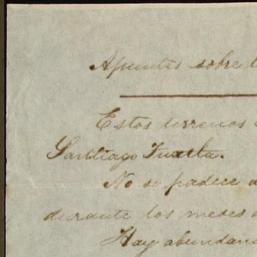 Apuntes sobre l
Estos terrenos
Santiago Iuarta.
No se padece
durante los meses
Hay abundan